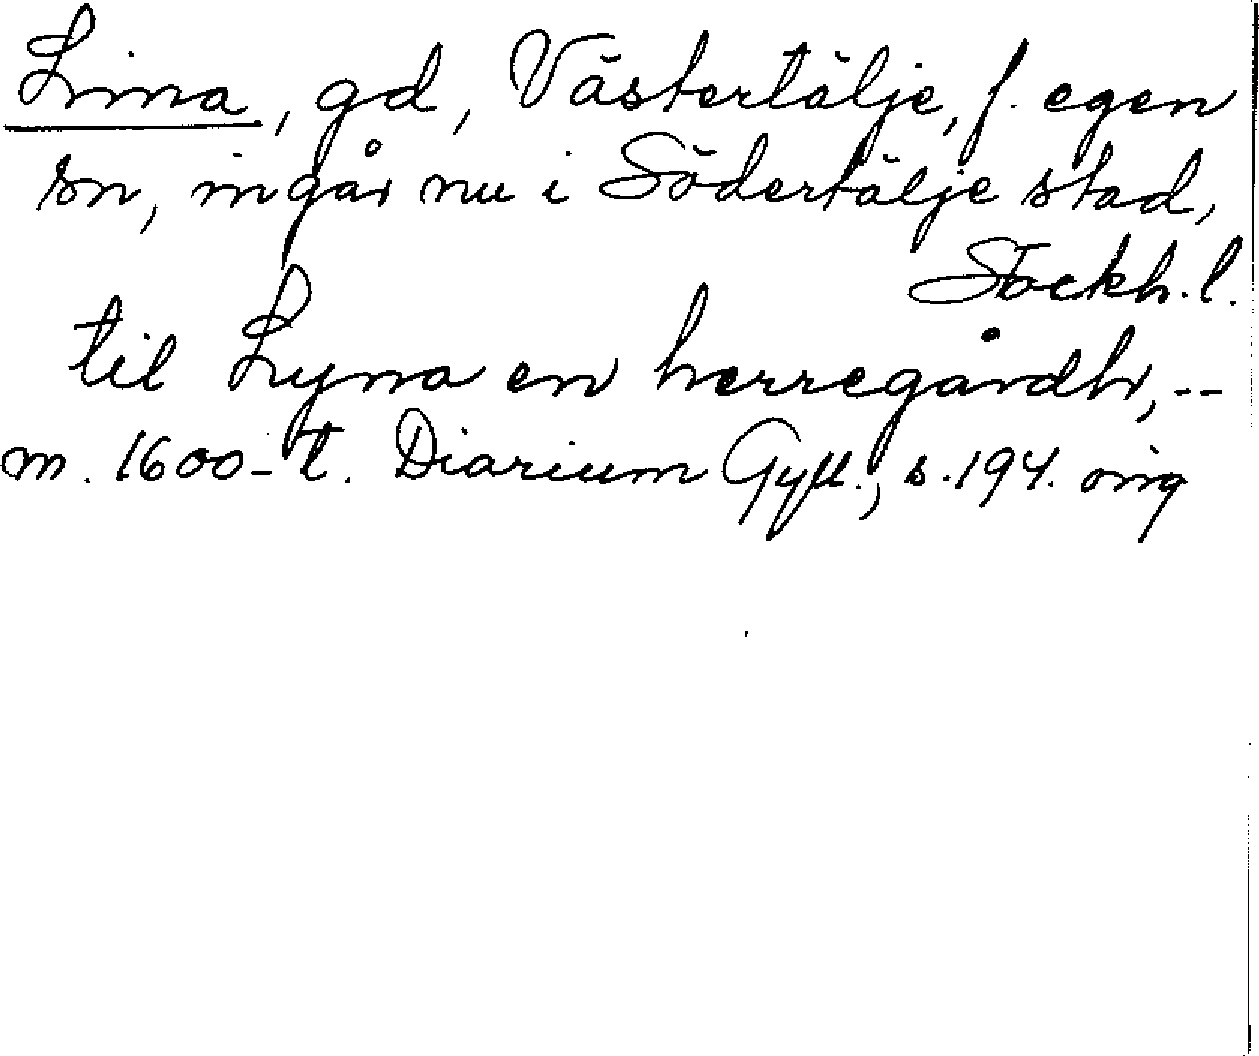 Lina, gd, Västertälje, f. egen
sn, ingår nu i Södertälje stad,
Stockh. l.
til Lyna en herregårdh, --
m. 1600-t. Diarium Gyll., s. 194. orig